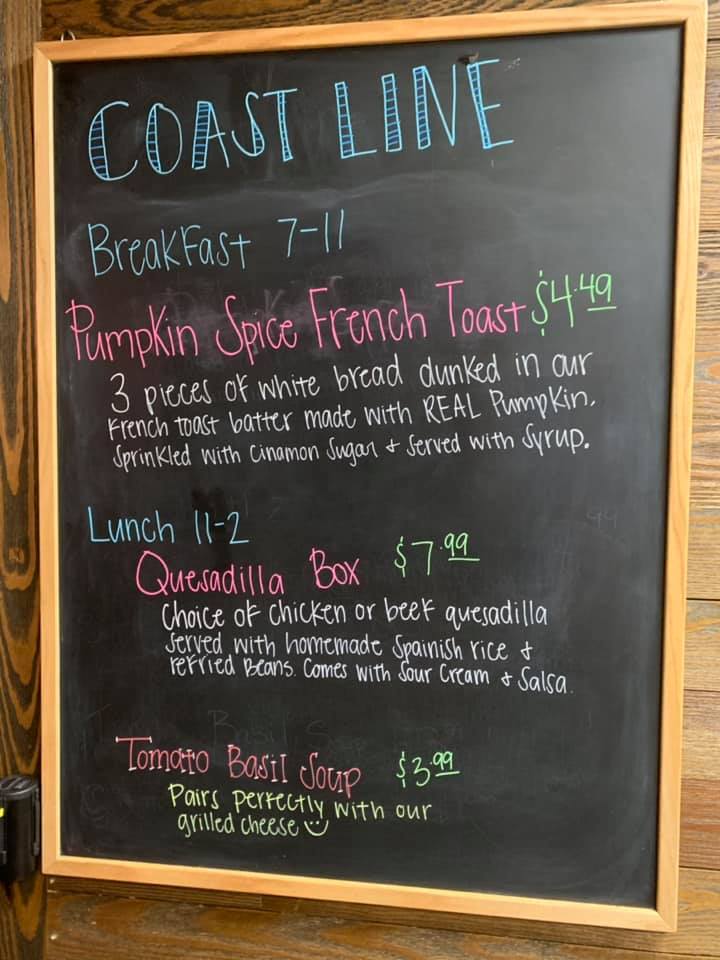 COAST LINE
Breakfast 7-11
Pumpkin Spice French Toast $4.49
3 pieces of white bread dunked in our
French toast batter made with REAL Pumpkin.
Sprinkled with Cinamon Sugar + Served with Syrup.
Lunch 11-2
Quesadilla Box $7.99
Choice of chicken or beef quesadilla
Served with homemade Spainish rice +
refried Beans. Comes with Sour Cream + Salsa.
Tomato Basil Soup $3.99
Pairs perfectly with our
grilled cheese